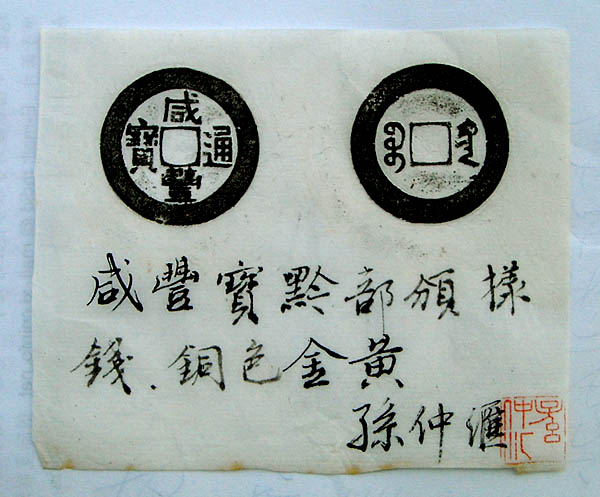 咸豐通寶
咸豐寶黔部頒樣
錢、銅色金黃
孫仲滙